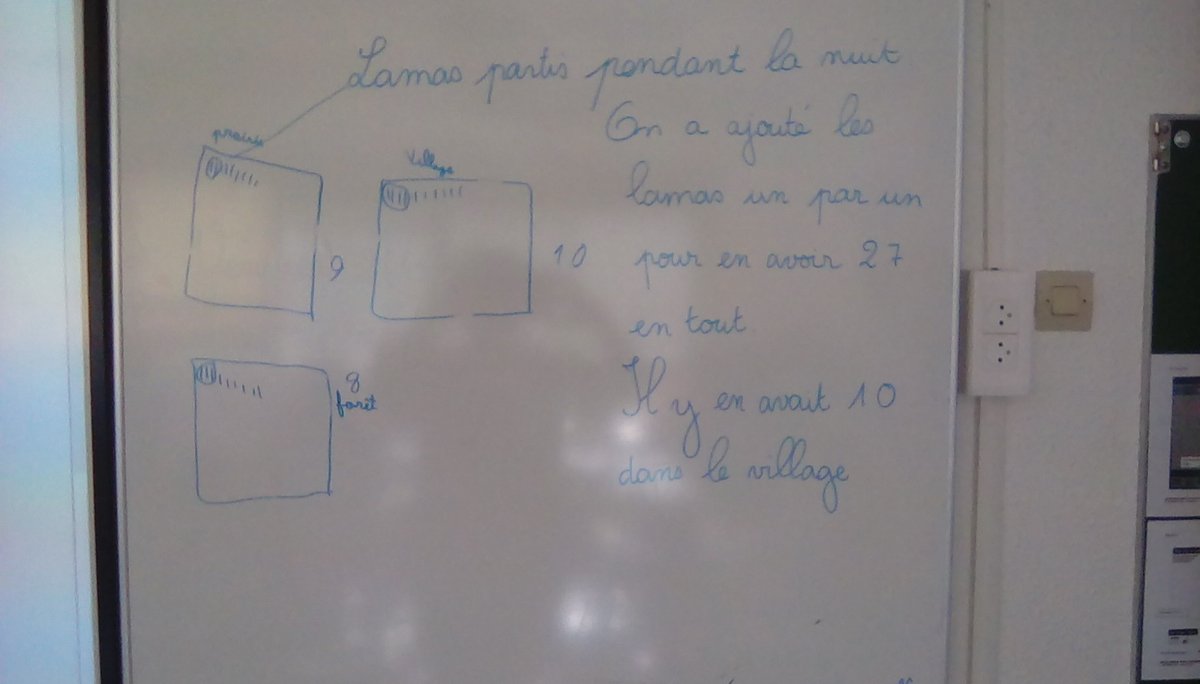 Lamas partis pendant la nuit
prairie
village
On a ajouté les
lamas un par un
9
10
pour en avoir 27
en tout.
8
forêt
Il y en avait 10
dans le village